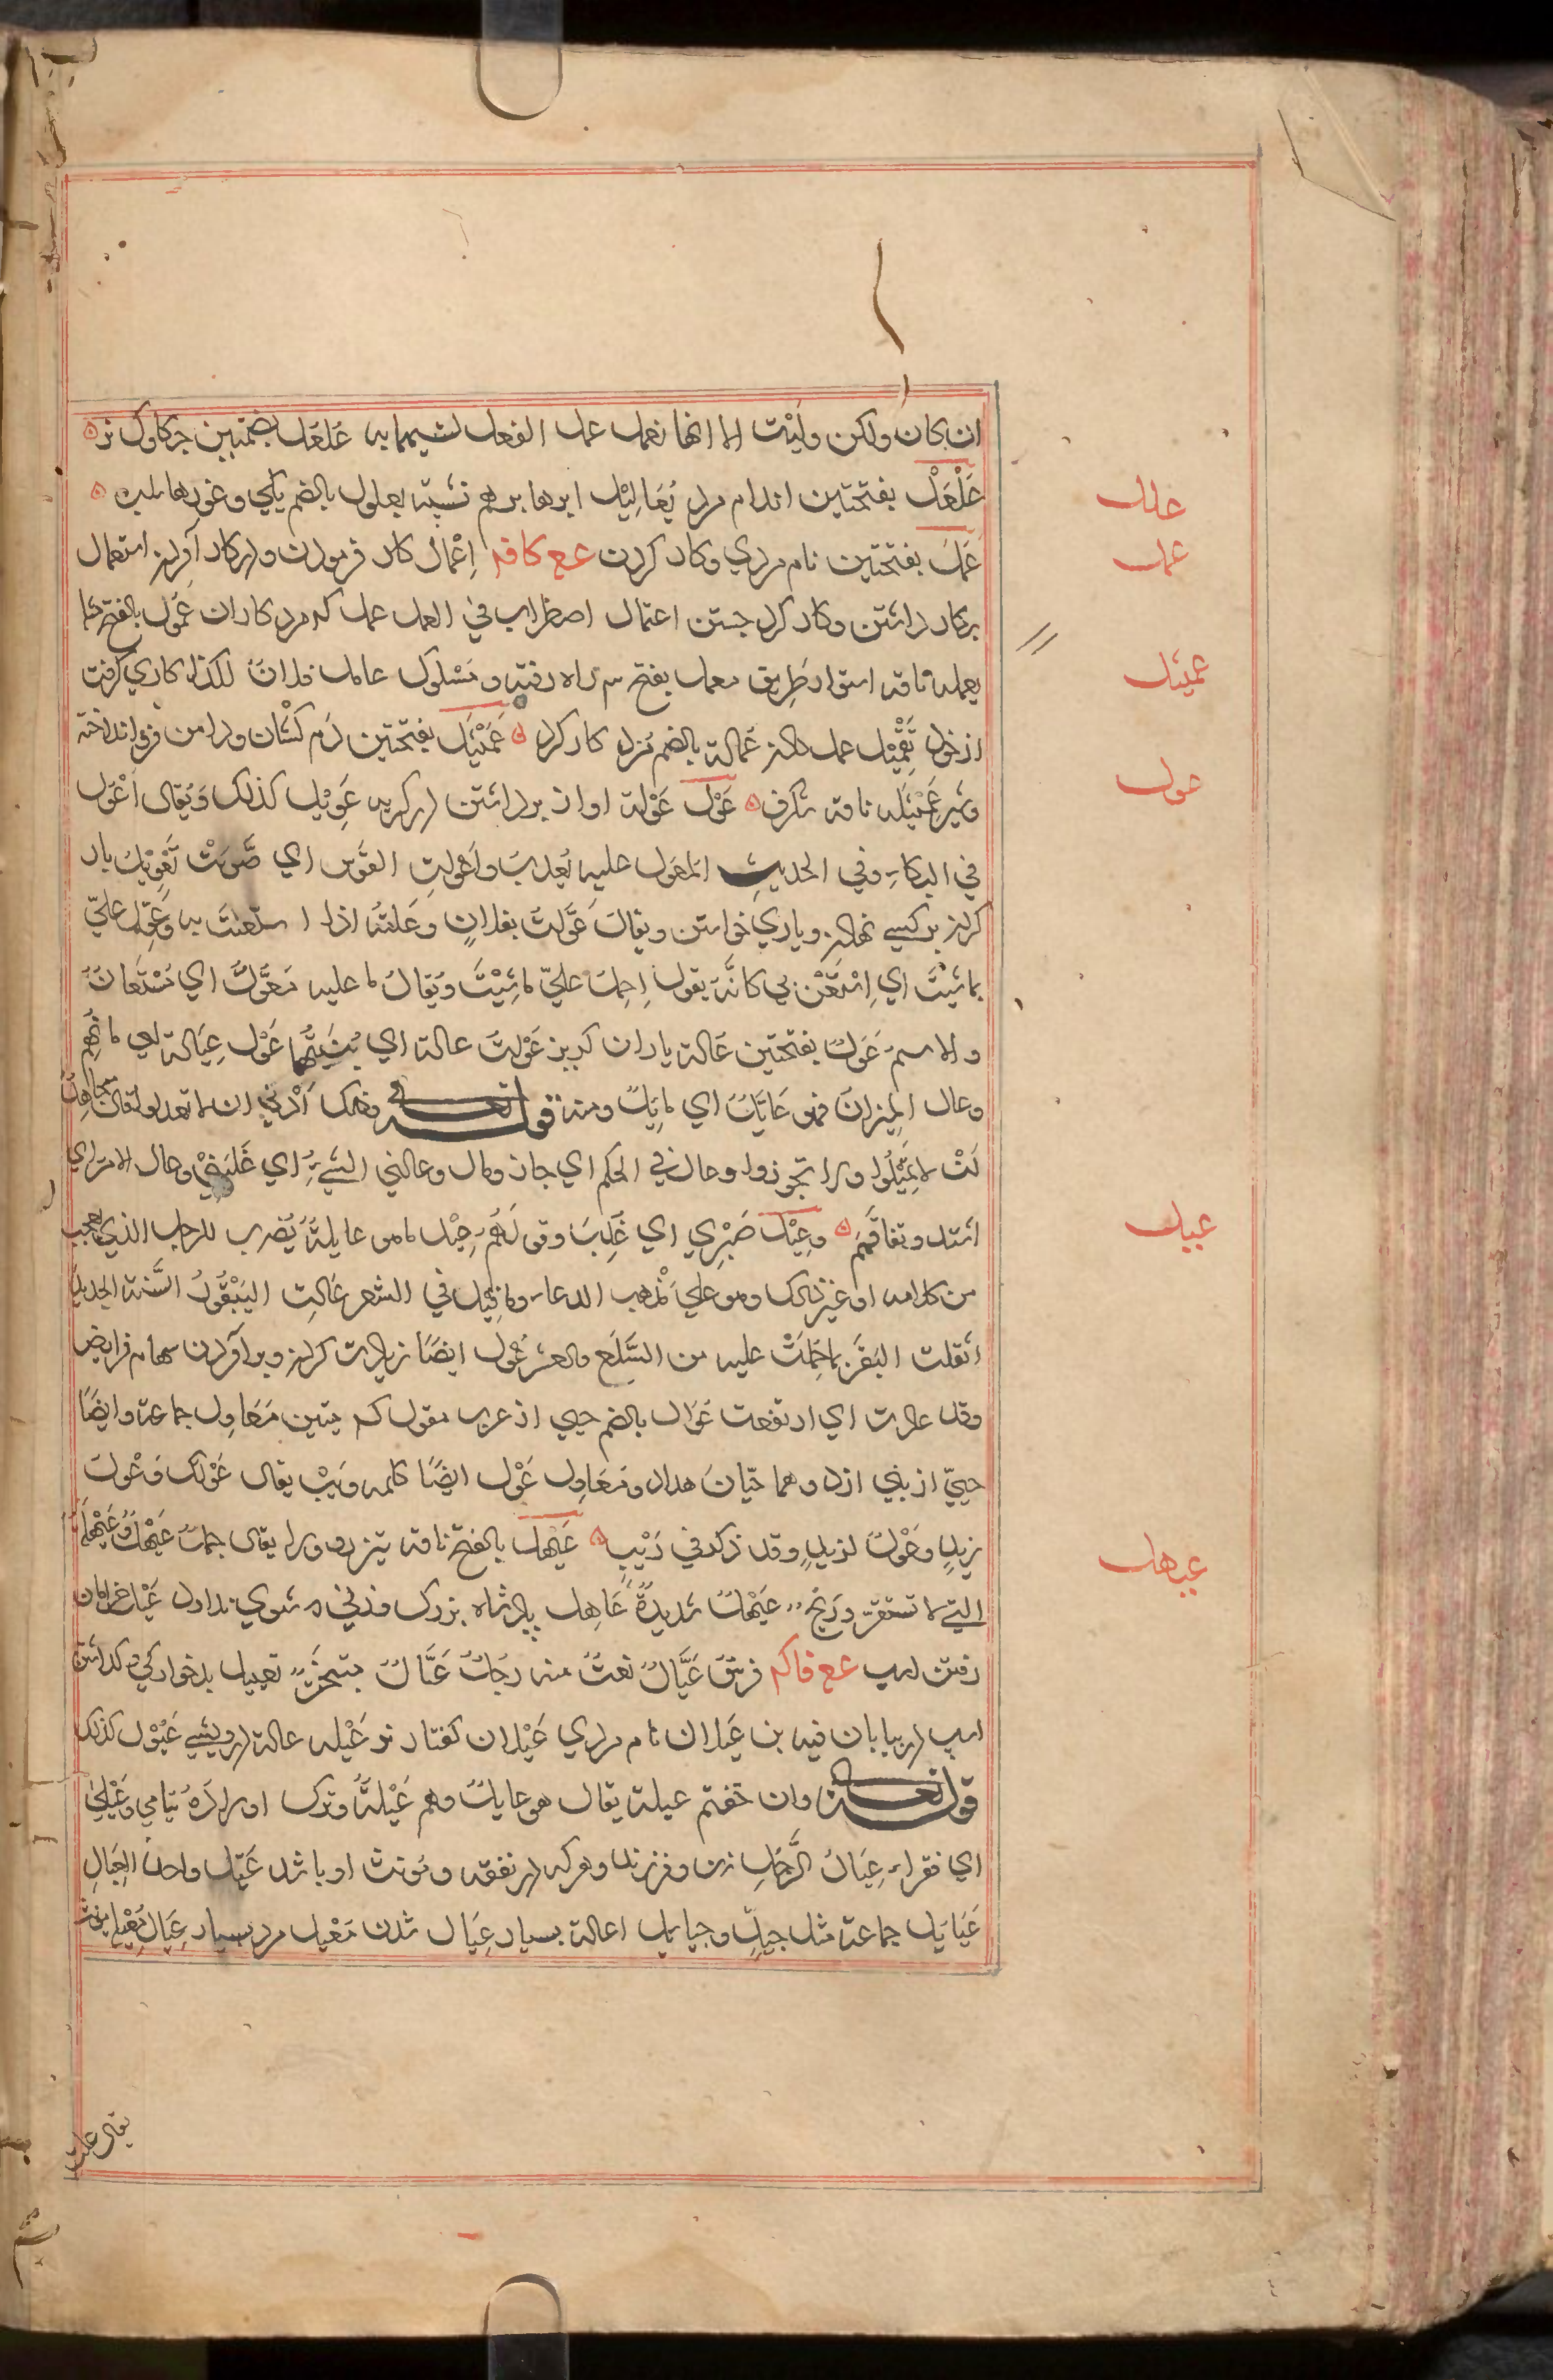 ان كان ولكن وليت الا انها تعمل عمل الفعل لشبهها به عَلعَل بضمتين چكاوك نر
عَلْعَلْ بفتحتين اندام مرد يَعَالِيْل ابرها برهم نشسته يعلول بالضم يكي و غورهاء
عَمَلَ بفتحتين نام مردي وكار كردن عع كافه اِعْمَال كار فرمودن ودر كار آوردن استعمال
بركار داشتن وكار كرد جستن اعتمال اضطراب في العمل عمله كه مرد كاران عَمُول بالفتح
يعمله ناقه استوار طريق معمل بفتح م راه رفته ومَسْلوك عامل فلان للكذا كاري گرفت
از خود تَعْمِيْل عمل دادن عُمالة بالضم مزد كار كرد عَمَيْثَل بفتحتين دُم كشان ودامن فرو انداخته
وشير عَمَيْثَله ناقه شگرف عَوْل عَوْلة اواز برداشتن در گريه عَوِيْل كذلك وَيُقال اَعْوَل
في البكاءِ وفي الحديثِ المعول عليه يُعذب واَعولتِ القوس اي صَوتَتْ تَعْوِيْل بار
كردن بر كسي نهادن وياري خواستن ويقال عَوَّلتُ بفلانٍ وعَلتهُ اذا استعنتَ به وعَوِّل عليّ
بما شِئتَ اي اِسْتَعْن بي كانّه يقول اِحمل عليّ ما شِئْتَ وَيُقالُ ما عليه مُعَوَّلٌ اي مُسْتَعانٌ
والاسم عَولٌ بفتحتين عَالة باران گريز عَولتُ عالة اي بنيتُها عَوْل عِيَالة
وعال الميزانُ فهو عَايِلٌ اي مايلٌ ومنه قوله تعالى وذلك اَدْنى ان لا تعدلوا قال مجاهد
لئلا تميلوا ولا تجوروا وعال في الحكم اي جار ومال وعالني الشيءُ اي غَلَبَنِيْ وعال الامر اي
اشتد وتفاقَمَ وعِيْل صَبْرِي اي غُلِبَ وقولهُم عِيْل ما هو عايلهُ يُضرب للرجل الذي يعجب
من كلامه او غير ذلك وهو على مذهب الدعاء وما قيل في الشعر عَالتِ البَيْقُوْرُ السّنة الجديدة
اثقلت البقر بما حُمِّلَتْ عليه من السَّلَع والعشر عَول ايضًا زيادت كردن وبر آوردن سهام فرايض
وقد عالت اي ارتفعت عُوَال بالضم حيي از عرب مقول كه متين مَعَاوِل جماعة وايضًا
حييّ از بني ازد وهما حيّان هداد ومَعَاوِل عَوْل ايضًا كلمه وَيْب يقال عَوْلَك وَعْولَ
زيدٍ وعَوْلٌ لزيدٍ وقد ذكر في وَيْب عَيْهل بالفتح ناقه تيز رو ولا يقال جملٌ عَيْهلٌ وعَيْهلة
التي لا تستقر وريحٌ عَيْهلٌ شديدةٌ عَاهِل پادشاه بزرگ وزني شوي ندارد عَيْل خرامان
رفتن اسب عع فاكه فرسٌ عَيَّالٌ نعتٌ منه رجلٌ عَيَّالٌ متبختر تعييل بدخواركي كداشتن
اسب در بيابان فيه بن عَيلان نام مردي عَيْلان كفتار نر عَيْله عالة درويشي عَيُوْل كذلك
قوله تعالى وان خفتم عيلة يقال هو عايلٌ وهم عَيْلةٌ وترك اولادهُ يتامي وعَيْلي
اي فقراء عِيَالُ الرَّجُلِ زن وفرزند وهركه در نفقه ومُونت او باشد عَيّل واحد العِيَالِ
عَيَايَل جماعة مثل جيّدٍ وجيايد اعالة بسيار عِيَال شدن مُعْيل مرد بسيار عِيَال مُعْيلة مونث
علل
عمل
عميثل
عول
عيل
عيهل
يقال علت